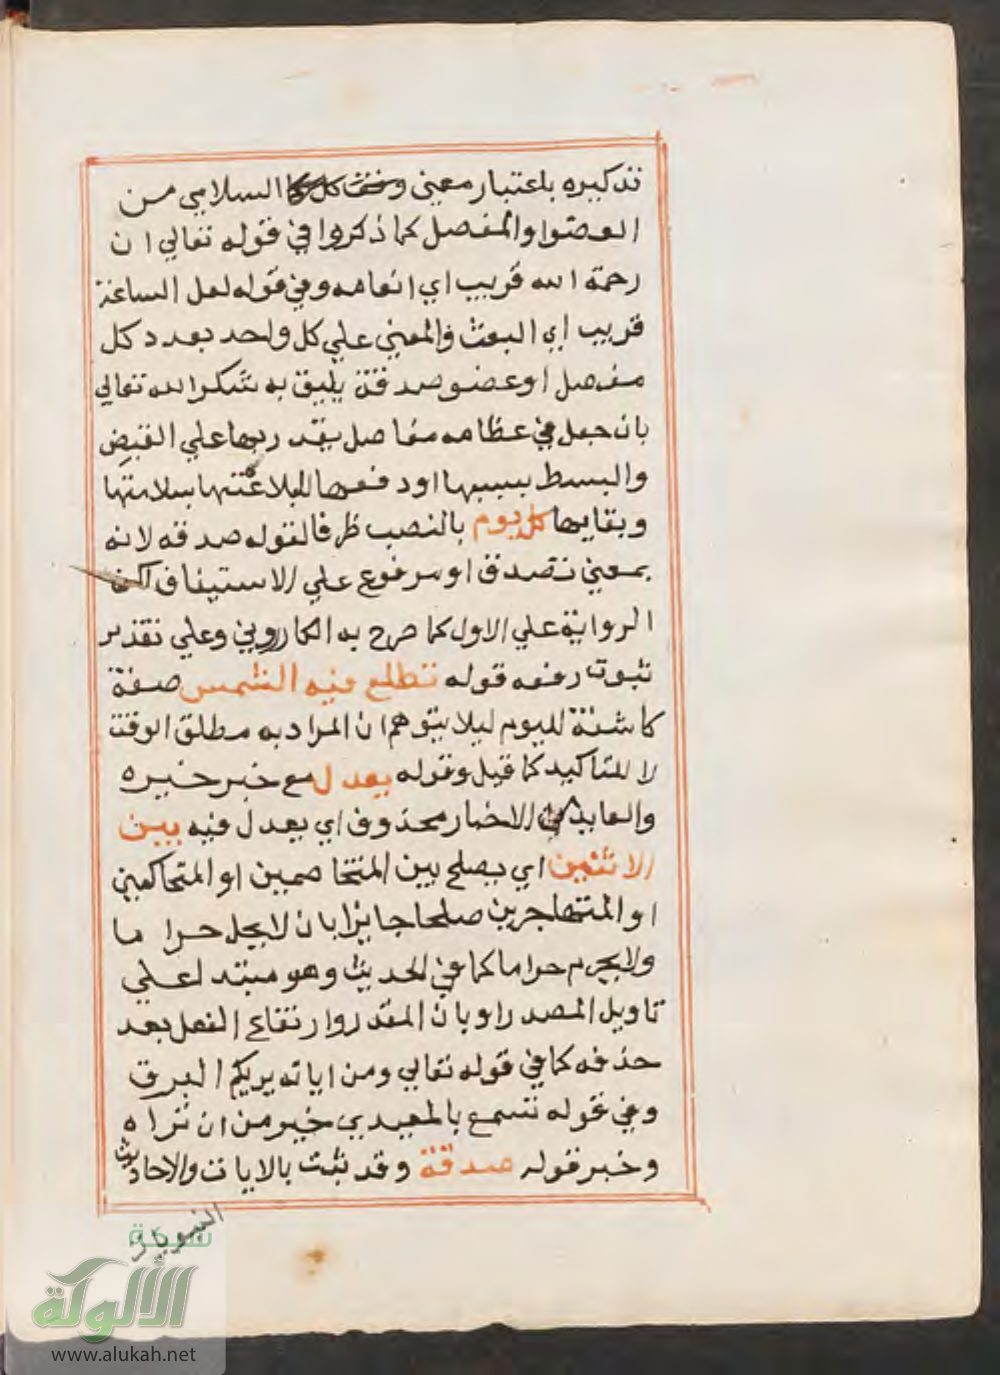 تذكيره باعتبار معني السلامي من
العضوا والمفصل كما ذكروا في قوله تعالي ان
رحمة الله قريب اي انعامه وفي قوله لعل الساعة
قريب اي البعث والمعني علي كل واحد بعدد كل
مفصل او عضو صدقة يليق به شكرا لله تعالي
بان جعل في عظامه مفاصل يقدر بها علي القبض
والبسط بسببها او دفعها للبلا عنها بسلامتها
وبقايها كل يوم بالنصب ظرفا لقوله صدقه لانه
بمعني تصدق او مرفوع علي الاستيناف لكن
الرواية علي الاول كما صرح به الكازروني وعلي تقدير
ثبوت رفعه قوله تطلع فيه الشمس صفة
كاشفة لليوم ليلا يتوهم ان المراد به مطلق الوقت
لا للتاكيد كما قيل وقوله يعدل مع خبر خبره
والعايد الاخبار محذوف اي يعدل فيه بين
الاثنين اي يصلح بين المتخاصمين او المتحاكمين
او المتهاجرين صلحا جايزا بان لا يحل حراما
ولا يحرم حراما كما في الحديث وهو مبتدا علي
تاويل المصدر او بان المقدر وارتفاع الفعل بعد
حذفه كما في قوله تعالي ومن اياته يريكم البرق
وفي قوله تسمع بالمعيدي خير من ان تراه
وخبر قوله صدقة وقد ثبت بالايات والاحاديث
النبويات
شبكة
الألوكة
www.alukah.net